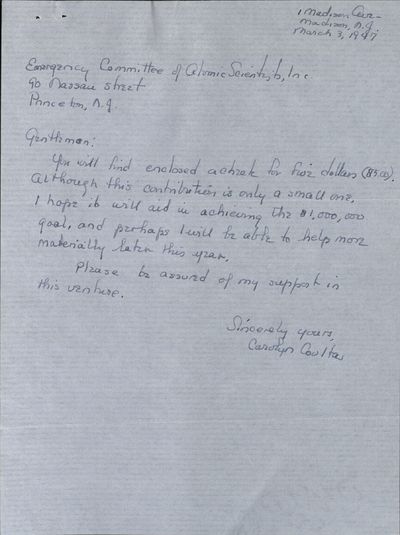 1 Madison Ave.
Madison, N.J.
March 3, 1947
Emergency Committee of Atomic Scientists, Inc.
90 Nassau Street
Princeton, N.J.
Gentlemen:
You will find enclosed a check for five dollars ($5.00).
Although this contribution is only a small one,
I hope it will aid in achieving the $1,000,000
goal, and perhaps I will be able to help more
materially later this year.
Please be assured of my support in
this venture.
Sincerely yours,
Carolyn Coulter